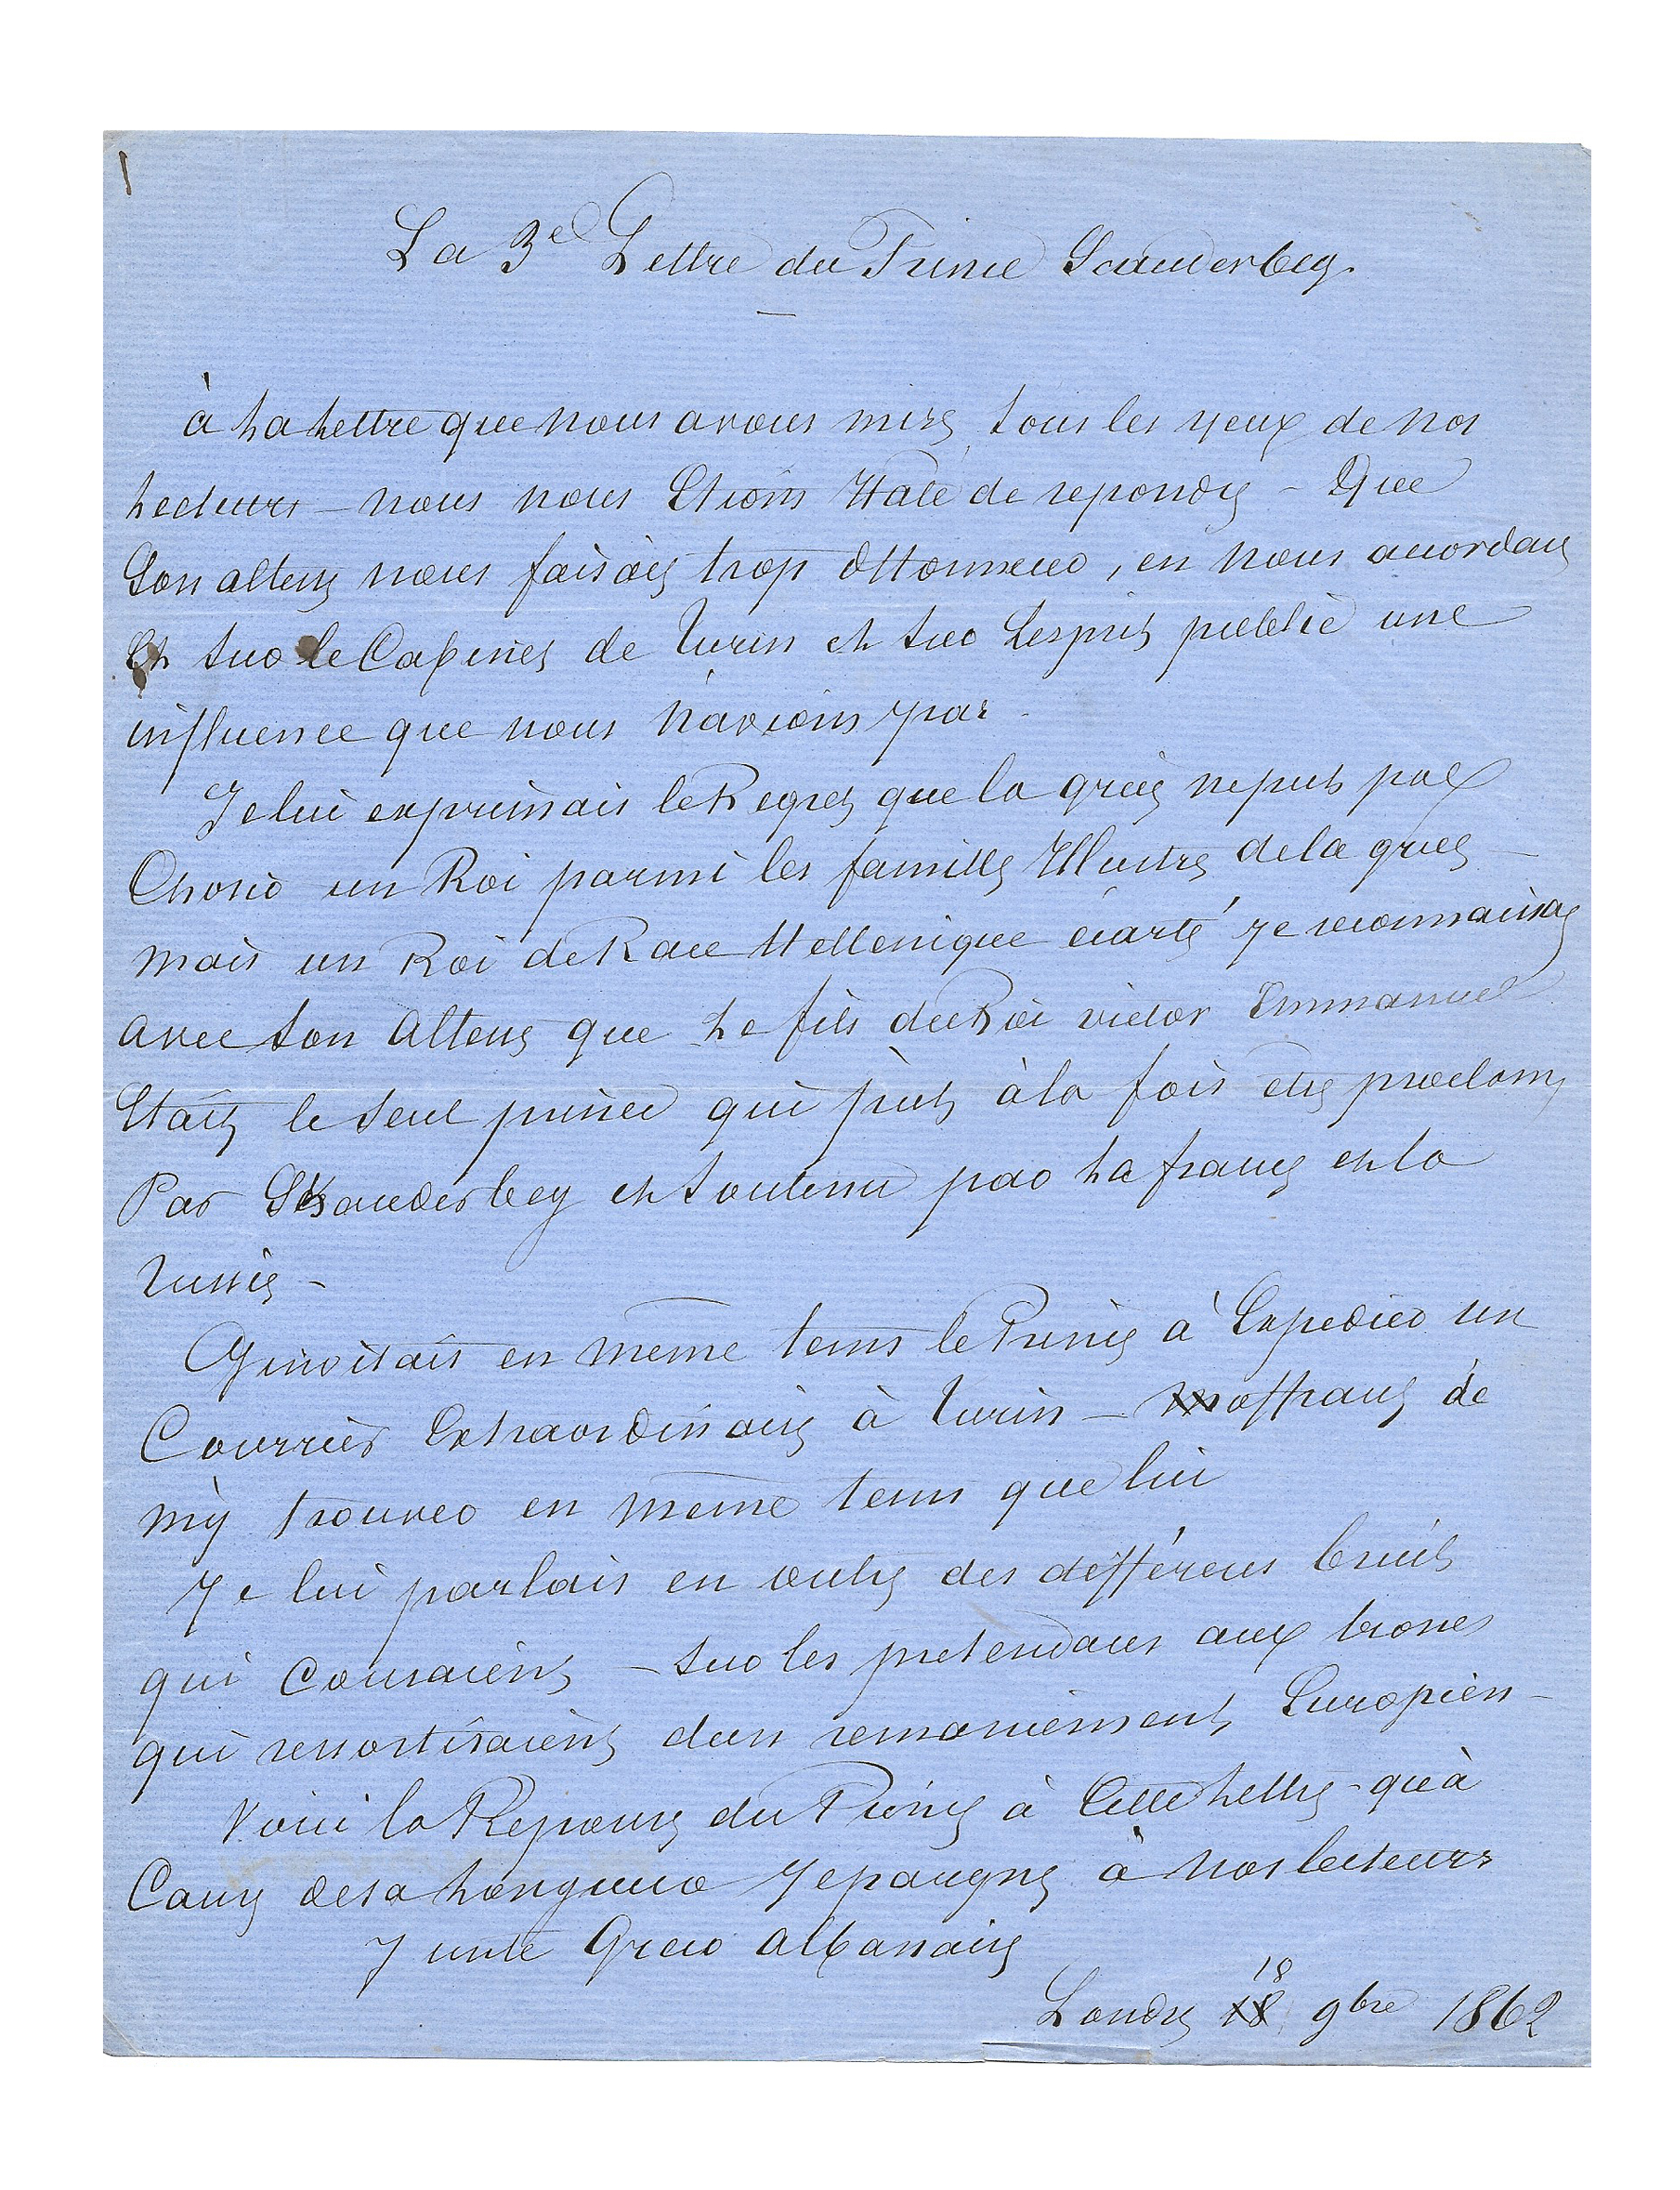 1
La 3e Lettre du Prince Scanderbeg.
à La Lettre que nous avons mise sous les yeux de nos
Lecteurs – nous nous Etions Haté de repondre – Que
Son altesse nous faisait trop d'honneur, en nous accordant
Et sur le Cabinet de Turin et sur Lesprit public une
influence que nous n'avions pas.
Je lui exprimais le Regret que la grece ne put pas
Choisir un Roi parmi les familles Illustres de la grece –
mais un Roi de Race Hellenique écarté je reconnaissais
avec son Altesse que Le fils du Roi victor Emmanuel
Etait le seul prince qui put à la fois etre proclamé
Par Skanderbeg et soutenu par La france et la
russie –
J'invitais en meme tems le Prince à Expedier un
Courrier Extraordinaire à Turin – m'offrant de
m'y trouver en meme tems que lui
Je lui parlais en outre des différens bruits
qui Couraient – sur les pretendans aux trones
qui ressortiraient d'un remaniement Européen –
Voici la Reponse du Prince à Cette Lettre – qu'à
Cause de sa Longueur J'epargne à nos lecteurs
Junte Greco albanaise
Londres 18 18 9bre 1862